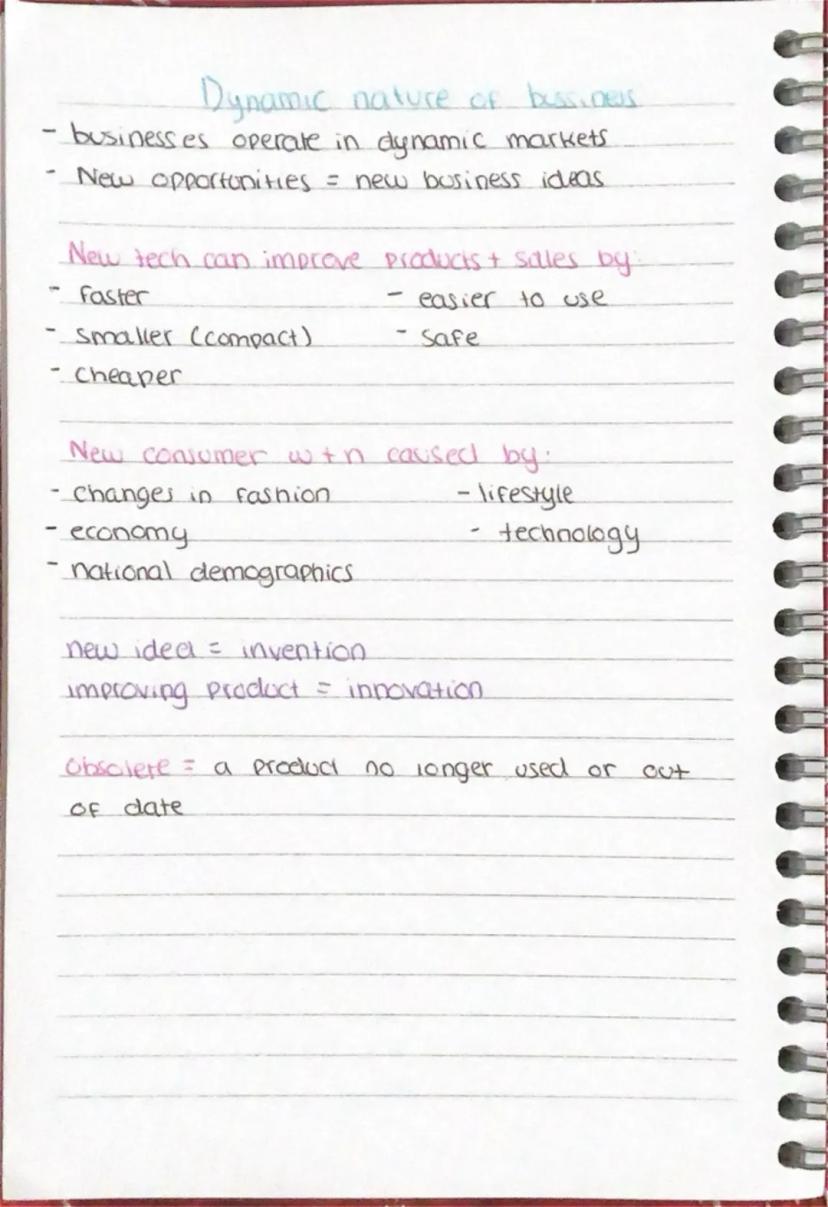 Dynamic nature of bussiness
- businesses operate in dynamic markets
- New opportunities = new business ideas
New tech can improve products + sales by:
- faster - easier to use
- smaller (compact) - safe
- cheaper
New consumer w+n caused by:
- changes in fashion - lifestyle
- economy - technology
- national demographics
new idea = invention
improving product = innovation
obsolete = a product no longer used or out
of date